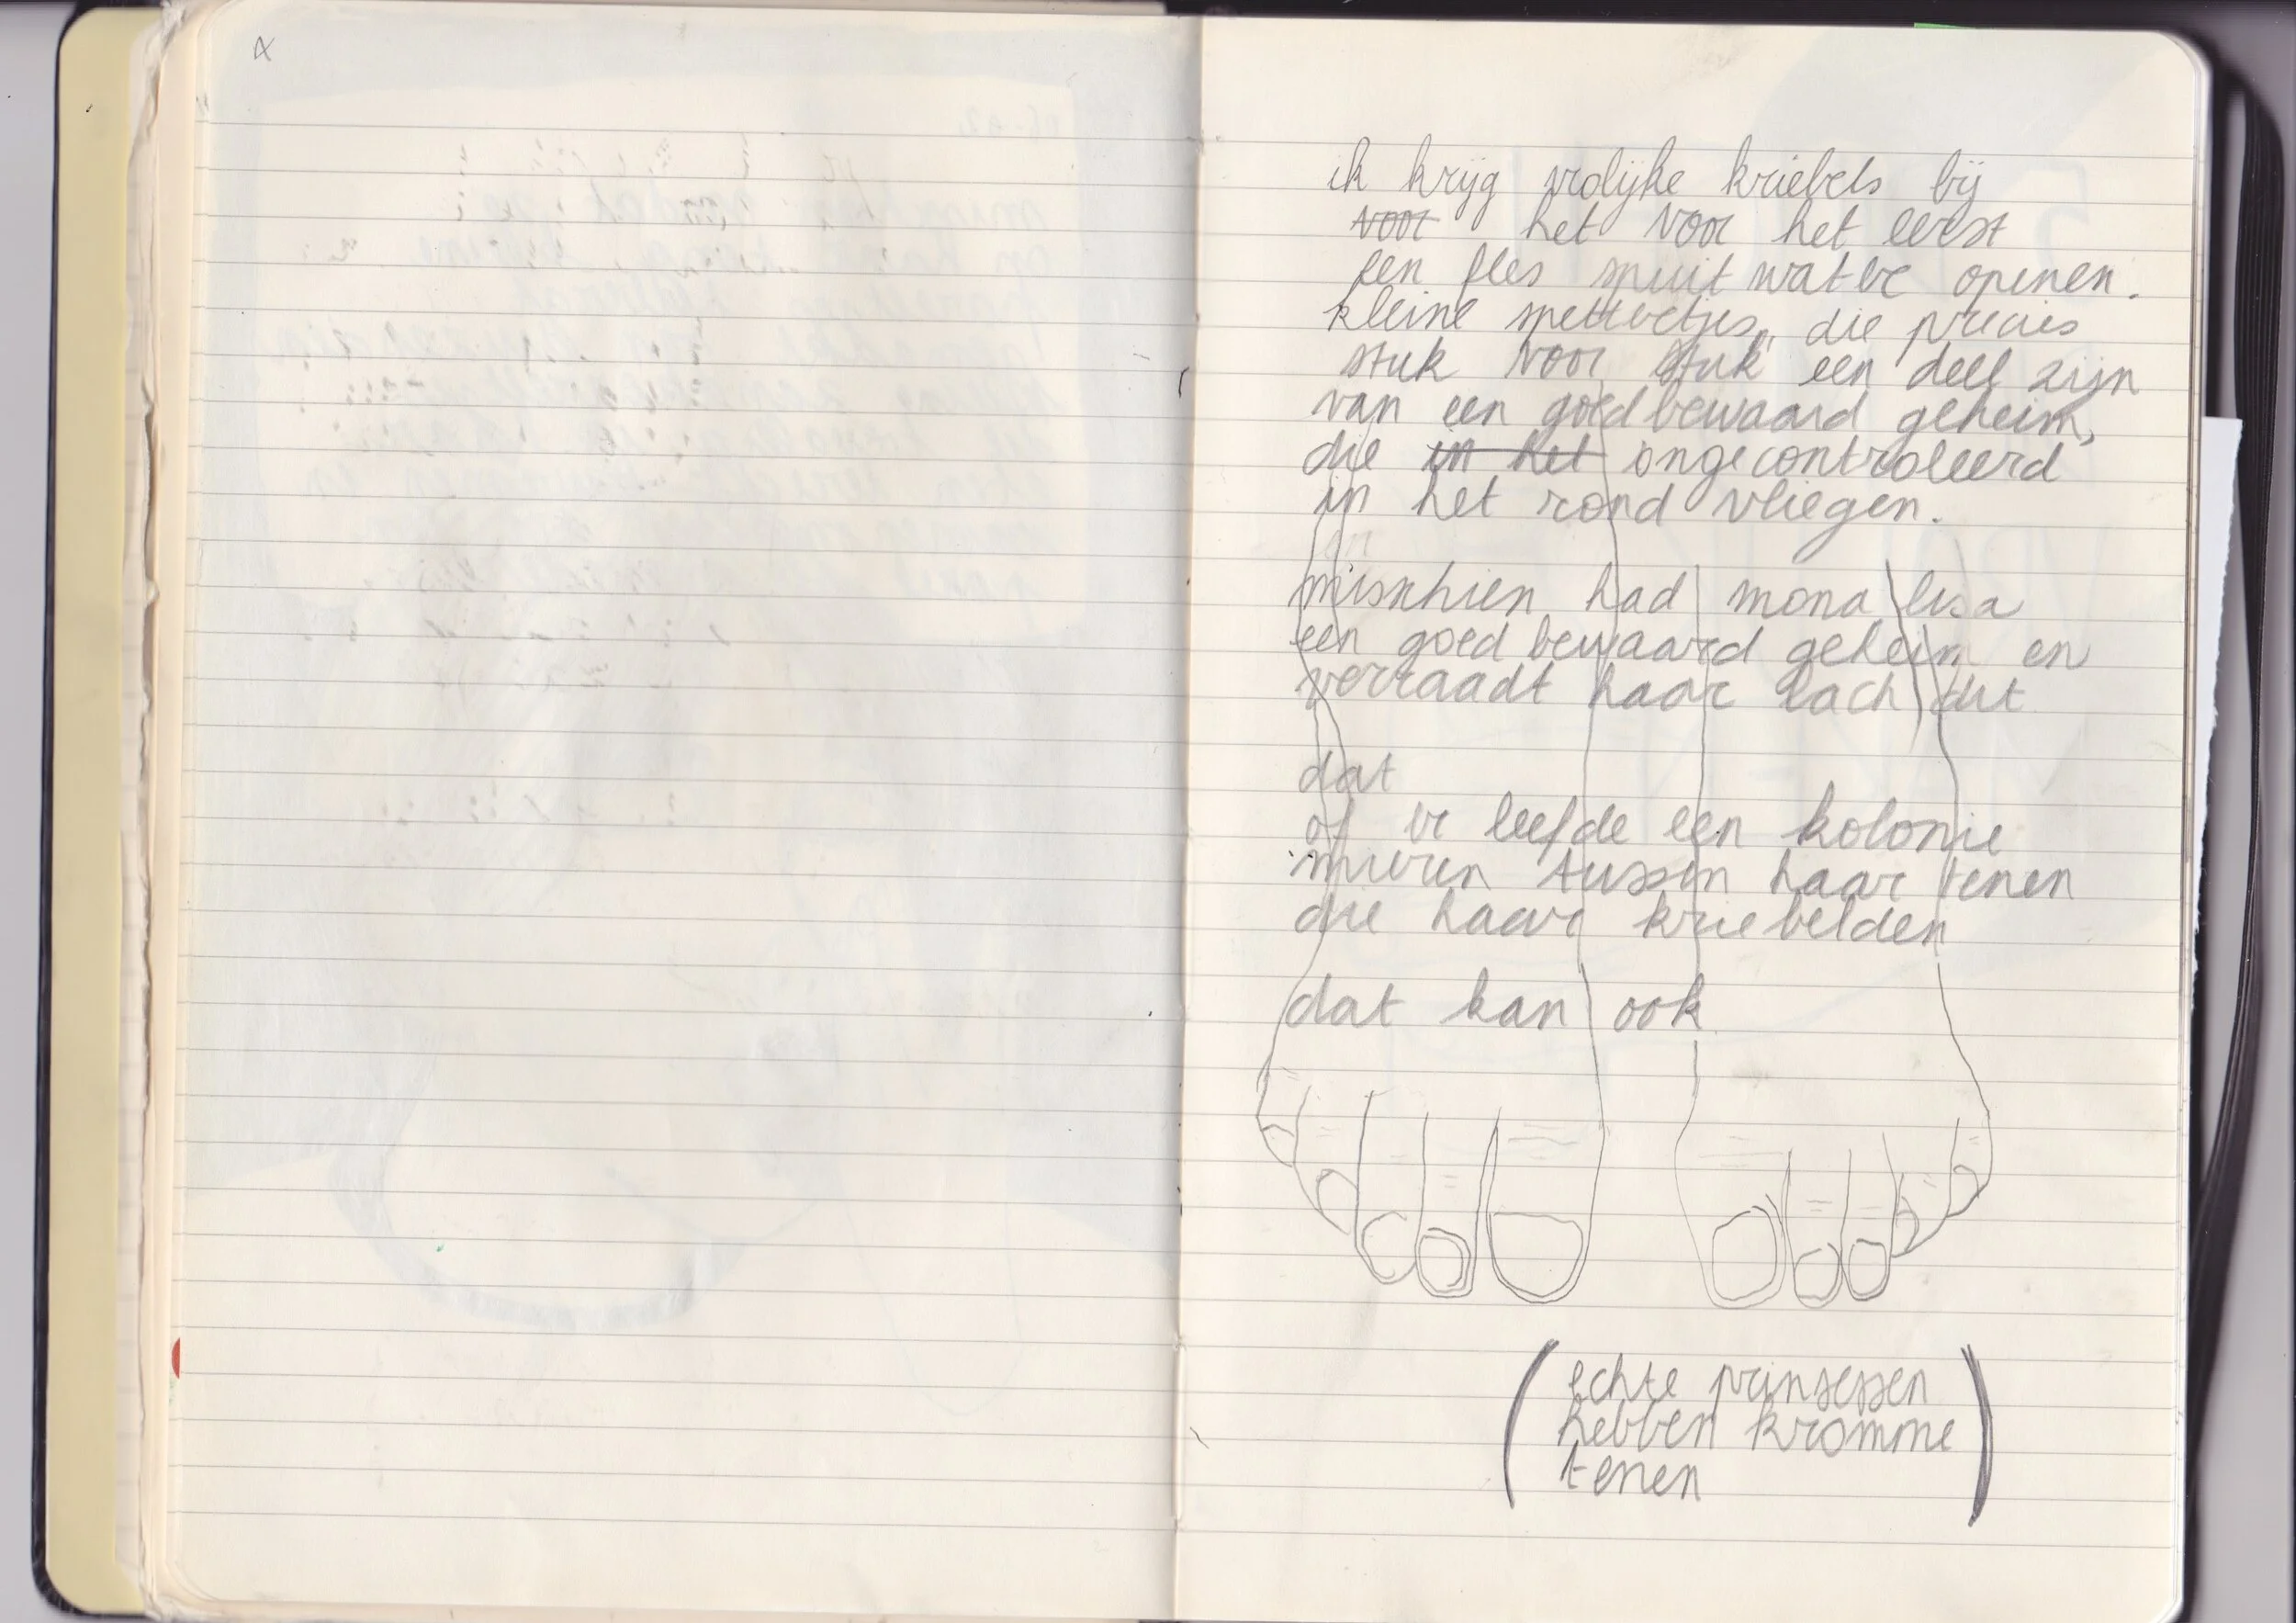 ik krijg vrolijke kriebels bij
voor het voor het eerst
een fles spuitwater openen.
kleine spettertjes, die precies
stuk voor stuk een deel zijn
van een goed bewaard geheim,
die in het ongecontroleerd
in het rond vliegen.
misschien had mona lisa
een goed bewaard geheim en
verraadt haar lach dit
dat
of er leefde een kolonie
mieren tussen haar tenen
die haar kriebelden
dat kan ook
(echte prinsessen
hebben kromme
tenen)